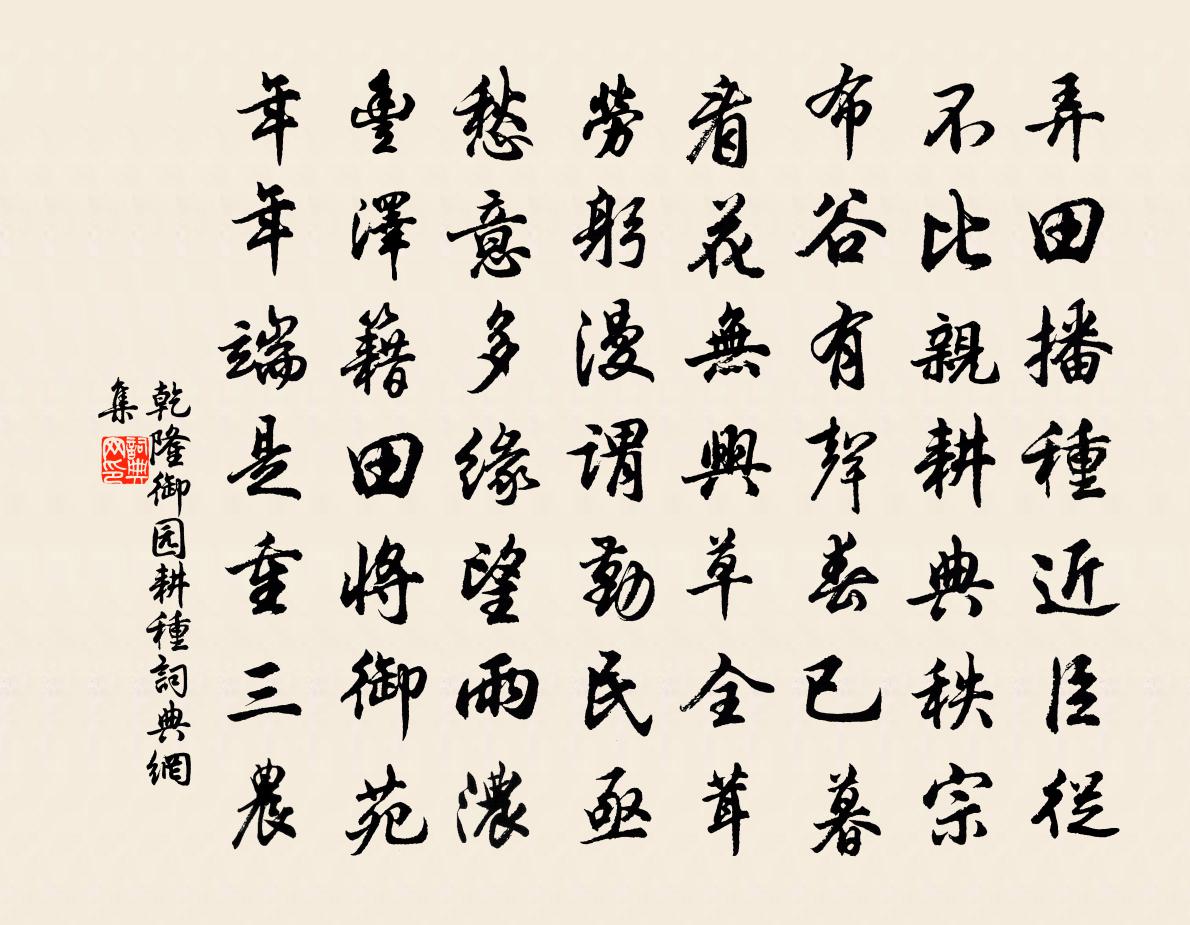 弄田播種近臣従
不比親耕典秩宗
布谷有聲春已暮
看花無興草全茸
勞躬漫謂勤民亟
愁意多緣望雨濃
豐澤籍田將御苑
年年端是重三農
乾隆御园耕種詞典網
集
詞典
网印